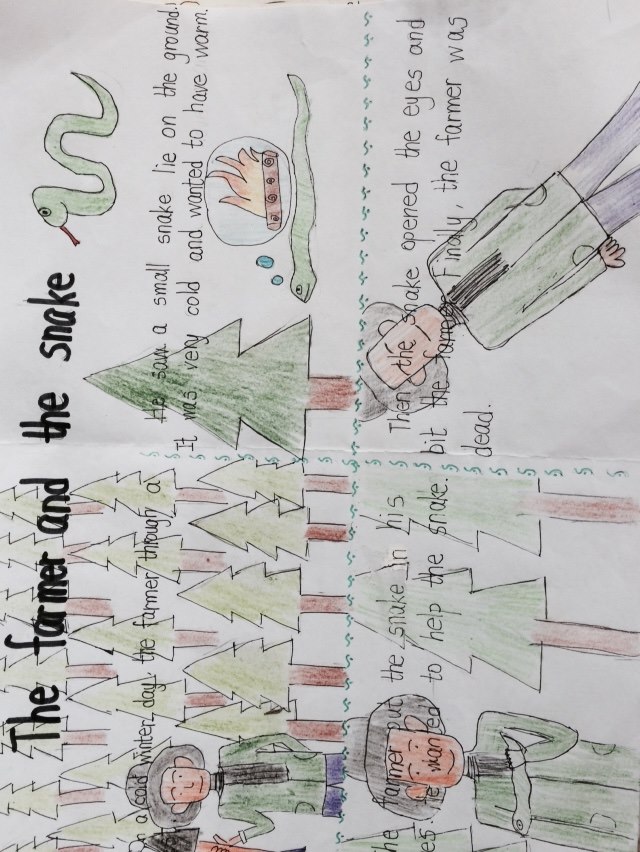 The farmer and the snake
On a cold winter day, the farmer through a
He saw a small snake lie on the ground.
It was very cold and wanted to have warm.
The farmer put the snake in his
He wanted to help the snake.
Then the snake opened the eyes and
bit the farmer. Finally, the farmer was
dead.